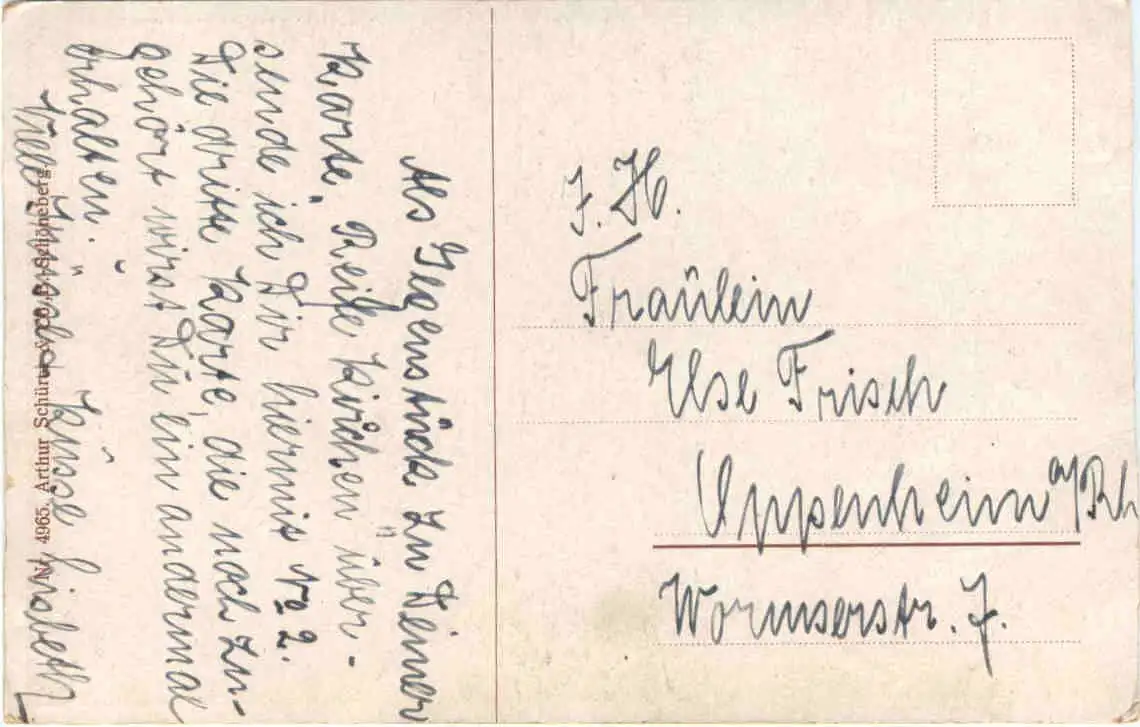 Als Gegenstück zu Deiner
Karte, Reihe Küchen über-
sende ich Dir hiermit No 2.
Die dritte Karte, die noch zu-
gehört wirst Du ein andermal
erhalten.
Viele Küsse Lisbeth
Nr. 4965. Arthur Schürer v. co. B. Schöneberg.
J. H.
Fräulein
Else Frisch
Oppenheim a/Rh
Wormserstr. 7.